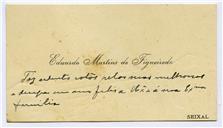 Eduardo Martins de Figueiredo
Faz votos pelas suas melhoras
e deseja um ano feliz a V. Exª e sua Exma
família
SEIXAL